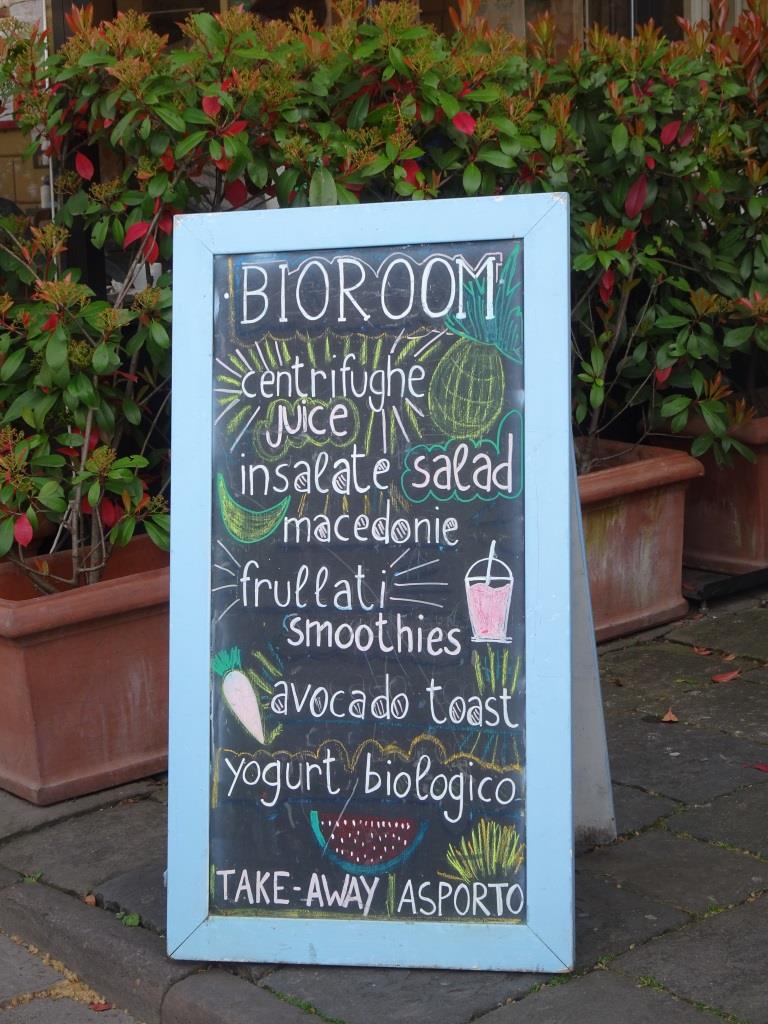 BIOROOM
centrifughe
juice
insalate salad
macedonie
frullati
smoothies
avocado toast
yogurt biologico
TAKE-AWAY | ASPORTO